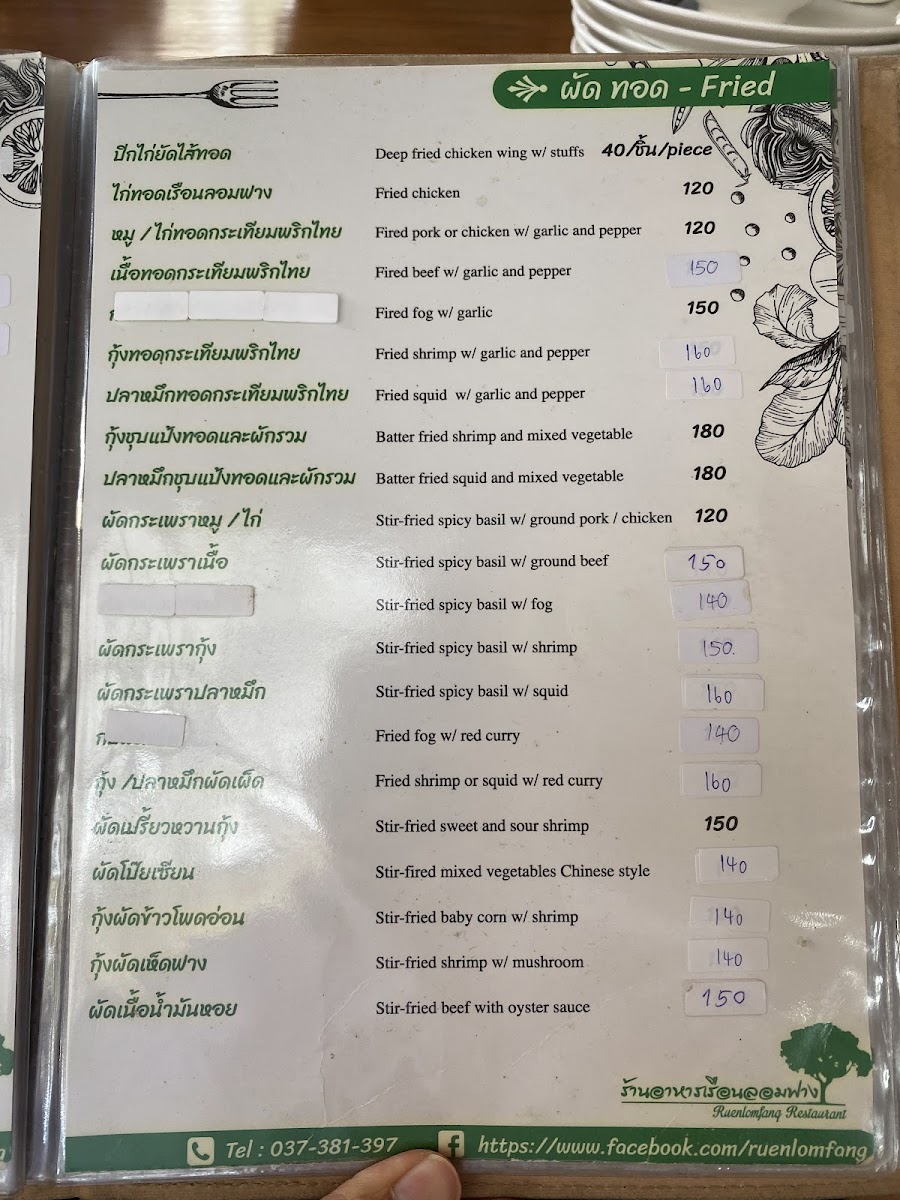 ผัด ทอด - Fried
ปีกไก่ยัดไส้ทอด Deep fried chicken wing w/ stuffs 40/ชิ้น/piece
ไก่ทอดเรือนลอมฟาง Fried chicken 120
หมู / ไก่ทอดกระเทียมพริกไทย Fired pork or chicken w/ garlic and pepper 120
เนื้อทอดกระเทียมพริกไทย Fired beef w/ garlic and pepper 150
Fired fog w/ garlic 150
กุ้งทอดกระเทียมพริกไทย Fried shrimp w/ garlic and pepper 160
ปลาหมึกทอดกระเทียมพริกไทย Fried squid w/ garlic and pepper 160
กุ้งชุบแป้งทอดและผักรวม Batter fried shrimp and mixed vegetable 180
ปลาหมึกชุบแป้งทอดและผักรวม Batter fried squid and mixed vegetable 180
ผัดกระเพราหมู / ไก่ Stir-fried spicy basil w/ ground pork / chicken 120
ผัดกระเพราเนื้อ Stir-fried spicy basil w/ ground beef 150
Stir-fried spicy basil w/ fog 140
ผัดกระเพรากุ้ง Stir-fried spicy basil w/ shrimp 150.
ผัดกระเพราปลาหมึก Stir-fried spicy basil w/ squid 160
Fried fog w/ red curry 140
กุ้ง /ปลาหมึกผัดเผ็ด Fried shrimp or squid w/ red curry 160
ผัดเปรี้ยวหวานกุ้ง Stir-fried sweet and sour shrimp 150
ผัดโป๊ยเซียน Stir-fired mixed vegetables Chinese style 140
กุ้งผัดข้าวโพดอ่อน Stir-fried baby corn w/ shrimp 140
กุ้งผัดเห็ดฟาง Stir-fried shrimp w/ mushroom 140
ผัดเนื้อน้ำมันหอย Stir-fried beef with oyster sauce 150
ร้านอาหารเรือนลอมฟาง
Ruenlomfang Restaurant
Tel : 037-381-397 https://www.facebook.com/ruenlomfang